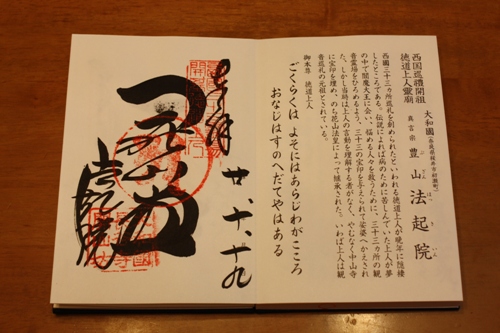 西国巡禮開祖
徳道上人靈廟
大和國（奈良県桜井市初瀬町）
真言宗 豊山 法起院
ぶざん ほっきいん
西国三十三ヵ所巡礼を創められたといわれる徳道上人が晩年に隠棲
したところである。伝説によれば病のために苦しんでいた上人が夢
の中で閻魔大王に会い、悩める人々を救うために、三十三ヵ所の観
音霊場をひろめるよう、三十三の宝印を与えられて娑婆へかえされ
た。しかし当時は上人の言動を理解する者がなく、やむなく中山寺
に宝印を埋め、のち花山法皇によって継承された。いわば上人は観
音巡礼の元祖とされている。
御本尊 徳道上人
ごくらくは よそにはあらじわがこころ
おなじはすのへだてやはある
奉拝
廿、十、十九
法起院